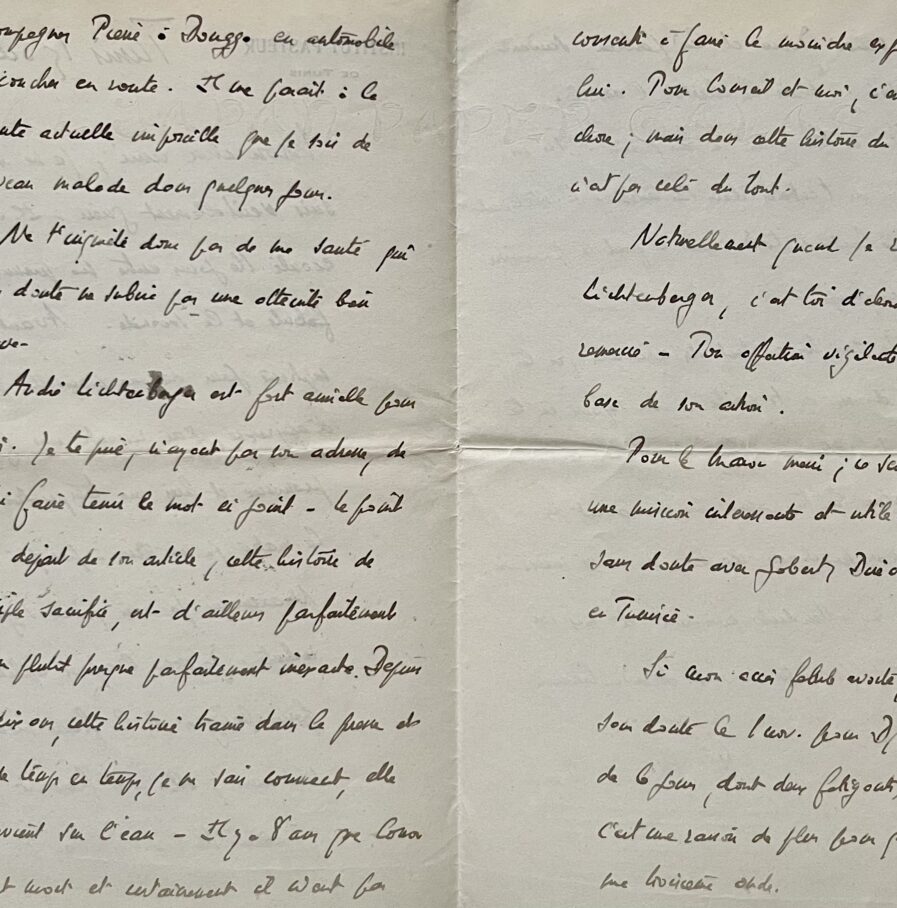 ompagner Pierre à Dougga en automobile
coucher en route. Il me paraît à la
actuelle impossible que je sois de
veau malade dans quelques jours.
Ne t'inquiète donc pas de ma santé qui
doute ne subira pas une atteinte bien
ve.
André Lichtenberger est fort aimable pour
i. Je te prie, n'ayant pas son adresse, de
i faire tenir le mot ci joint - le point
départ de son article, cette histoire de
sacrifié, est d'ailleurs parfaitement
plutôt presque parfaitement inexacte. Depuis
dix ans, cette histoire traine dans la presse et
temps en temps, je ne sais comment, elle
vient sur l'eau - Il y a 8 ans que
t mort et certainement il n'eut pas
INSTITUT PASTEUR
DE TUNIS
consenti à faire le moindre
lui. Pour Conseil et moi, c'
chose ; mais dans cette histoire du
n'est pas celà du tout.
Naturellement quand je
Lichtenberger, c'est toi d'abor
remercie - Ton affection vigilante
base de son action.
Pour le Maroc merci ; ce
une mission intéressante et utile
sans doute avec Gobert,
en Tunisie.
Si mon accès avorte,
sans doute le 1 nov. pour
de 6 jours, dont deux fatigants,
c'est une raison de plus pour
une troisième onde.